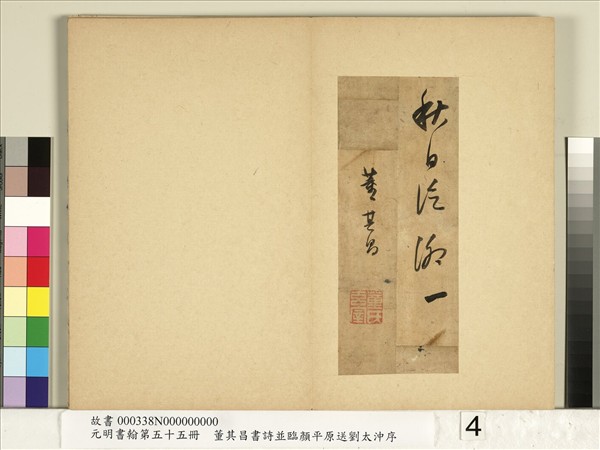 秋日泛湖一
董其昌
董氏玄宰
故書 000338N000000000
元明書翰第五十五冊 董其昌書詩並臨顏平原送劉太沖序
4